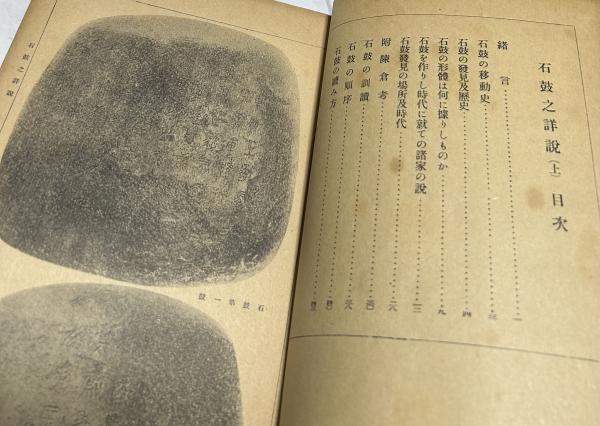 石鼓之詳說(上) 目次
緒言……一
石鼓の移動史……三
石鼓の發見及歷史……四
石鼓の形體は何に據りしものか……九
石鼓を作りし時代に就ての諸家の說……一三
石鼓發見の場所及時代
附陳倉考……二六
石鼓の訓讀
石鼓の順序
石鼓の讀み方
石鼓之詳說
石鼓第一鼓